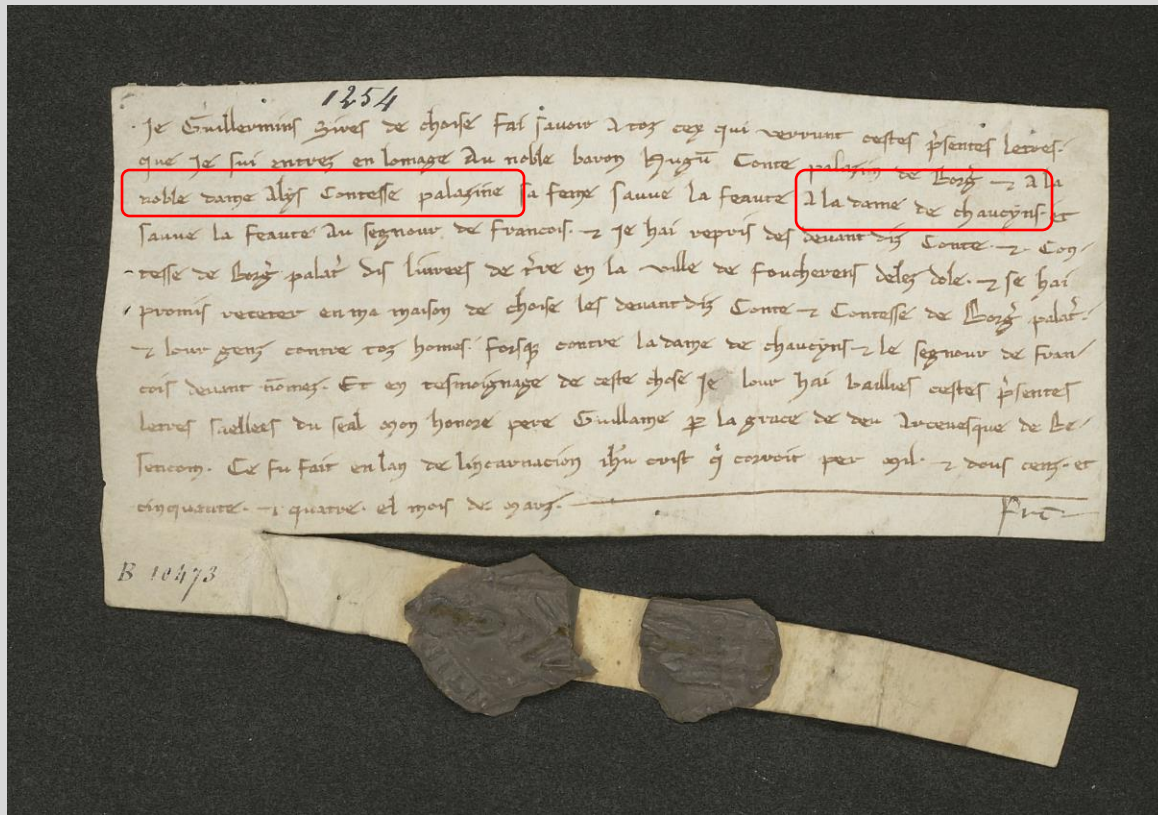 1254
Je Guillermins Sires de choise fai savoir A toz cex qui verrunt cestes p̄sentes letres.
que Je sui entrez en lomage Au noble baron Hugū Conte palazin de Borḡ ⁊ A la
noble dame Alys Contesse palazine sa feme sauve la feaute A la dame de chaucyns. et
sauve la feaute Au segnour de francois. ⁊ Je hai repris des devant diz Conte ⁊ Con-
tesse de Borḡ palat̄ dis livrees de t̄re en la ville de foucherens delez dole. ⁊ se hai
promis receter en ma maison de choise les devant diz Conte ⁊ Contesse de Borḡ palat̄.
⁊ lour genz contre toz homes. forsq̄ contre la dame de chaucyns ⁊ le segnour de fran-
cois devant nōmez. Et en tesmoignage de ceste chose Je lour hai baillies cestes p̄sentes
letres saellees du seal mon honore pere Guillame ꝑ la grace de deu Arcevesque de Be-
sencom. Ce fu fait en lan de lincarnacion ih̄u crist q̄ corroit per mil. ⁊ dous cenz. et
cinquante. ⁊ quatre. el mois de marz.
B 10473